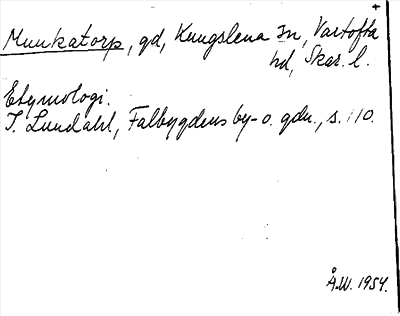 Munkatorp, gd, Kungslena sn, Vartofta
hd, Skar. l.
Etymologi.
I. Lundahl, Falbygdens by- o. gdn., s. 110.
Å.W. 1954.